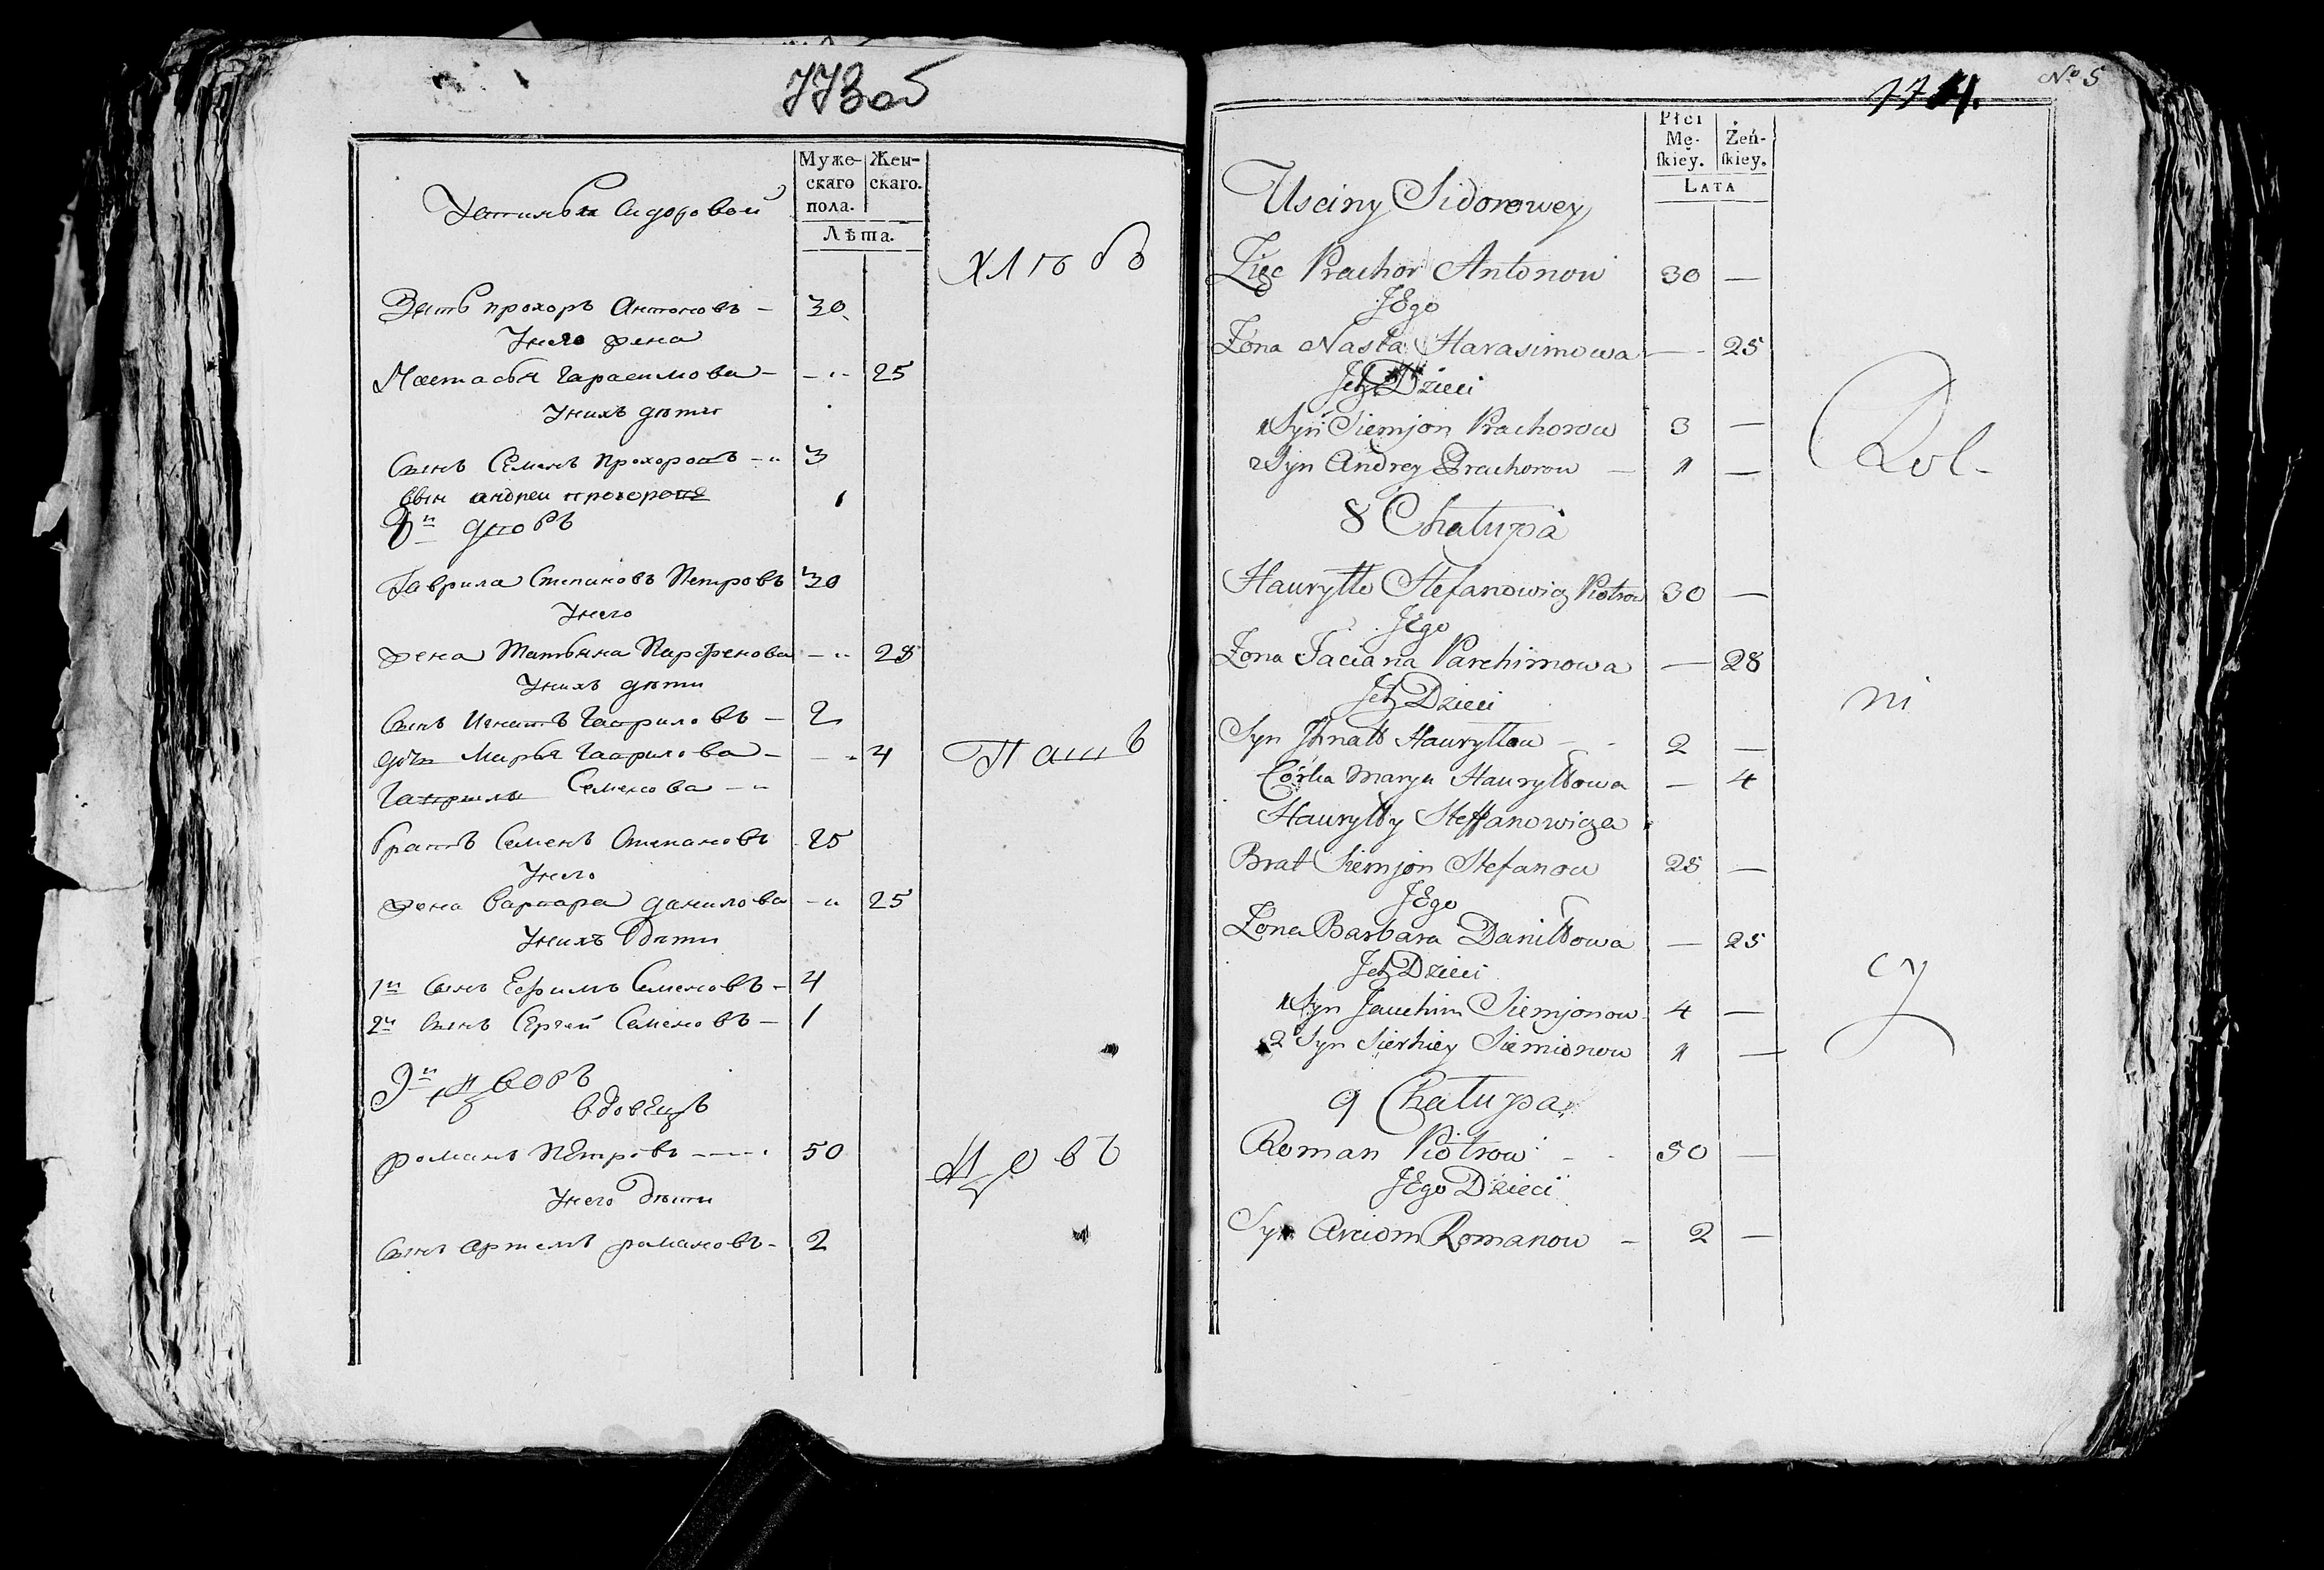 773об
Муже-
скаго
пола.
Жен-
скаго.
Лѣта.
Устиньи Сидоровой
хлѣбо
Зять прохоръ Антоновъ — 30
Унего жена
Настасья Гарасимова — 25
Унихъ дѣти
Сынъ Семенъ Прохоровъ 3
Сын андреи прохоровъ 1
8й дворъ
Гаврила Степановъ Петровъ 30
Унего
жена Татьяна Парфенова — 28
Унихъ дѣти
Сынъ Игнатъ Гавриловъ — 2
дочь Марья Гаврилова — 4
пашъ
Гаврилы Семенова
братъ Семенъ Степановъ 25
Унего
жена Варвара данилова — 25
Унихъ дѣти
1й Сынъ Ефримъ Семеновъ — 4
2й Сынъ Сергей Семеновъ — 1
9й дворъ
вдовецъ
романъ Петровъ 50
цовъ
Унего дѣти
Сынъ артемъ романовъ — 2
774.
№ 5
Płci
Mę-
skiey.
Żeń-
skiey.
LATA
Usciny Sidorowey
Zięc Prachor Antonow 30 —
JEgo
Żona Nasta Harasimowa — 25
Jch Dzieci
1 Syn Siemjon Prachorow 3 —
2 Syn Andrey Prachorow — 1 —
Rol-
8 Chałupa
Hauryłło Stefanowicz Piotrow 30 —
JEgo
Żona Taciana Parchimowa — 28
Jch Dzieci
ni
Syn Jhnat Hauryłłow 2 —
Córka Marya Hauryłłowa — 4
Hauryłły Steffanowicza
Brat Siemjon Stefanow 25 —
JEgo
Żona Barbara Daniłłowa — 25
Jch Dzieci
cy
1 Syn Jauchim Siemjonow 4 —
2 Syn Sierhiey Siemionow 1 —
9 Chałupa
Roman Piotrow 50 —
JEgo Dzieci
Syn Arciom Romanow — 2 —